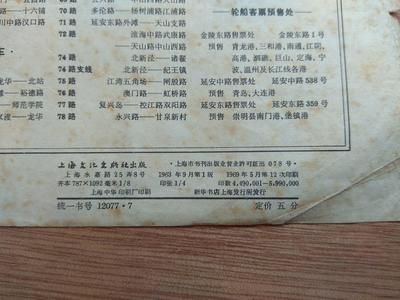 68路
69路
—十六铺
70路 多伦路——杨州路江浦路
川中路汉口路
71路 延安东路外滩——天山支路
72路 淮海中路武康路
——天山路中山西路
74路 北新泾——诸翟
74路支线 北新泾——纪王镇
龙华——北站
75路 江湾五角场——闸殷路
滩——裕德路
76路 澳门路——虹桥路
——师范学院
77路 复兴岛——校江路双阳路
渡——龙华
78路 永兴路——甘泉新村
——轮船客票预售处
金陵东路售票处 金陵东路1号
预售 青龙港,三和港,南通,江阴,
高港,泗礁,巨山,定海,宁
波,温州及长江线各港
延安中路售票处 延安中路538号
预售 青岛,大连港
延安东路售票处 延安东路359号
预售 崇明县南门港,堡镇港
上海文化出版社出版
上海永嘉路25弄8号
开本787×1092毫米1/8
上海中华印刷厂印刷
统一书号 12077·7
1963年9月第1版
印张1/4
·上海市书刊出版业营业许可证出078号·
1969年5月第12次印刷
印数4,490,001—5,990,000
新华书店上海发行所发行
定价五分